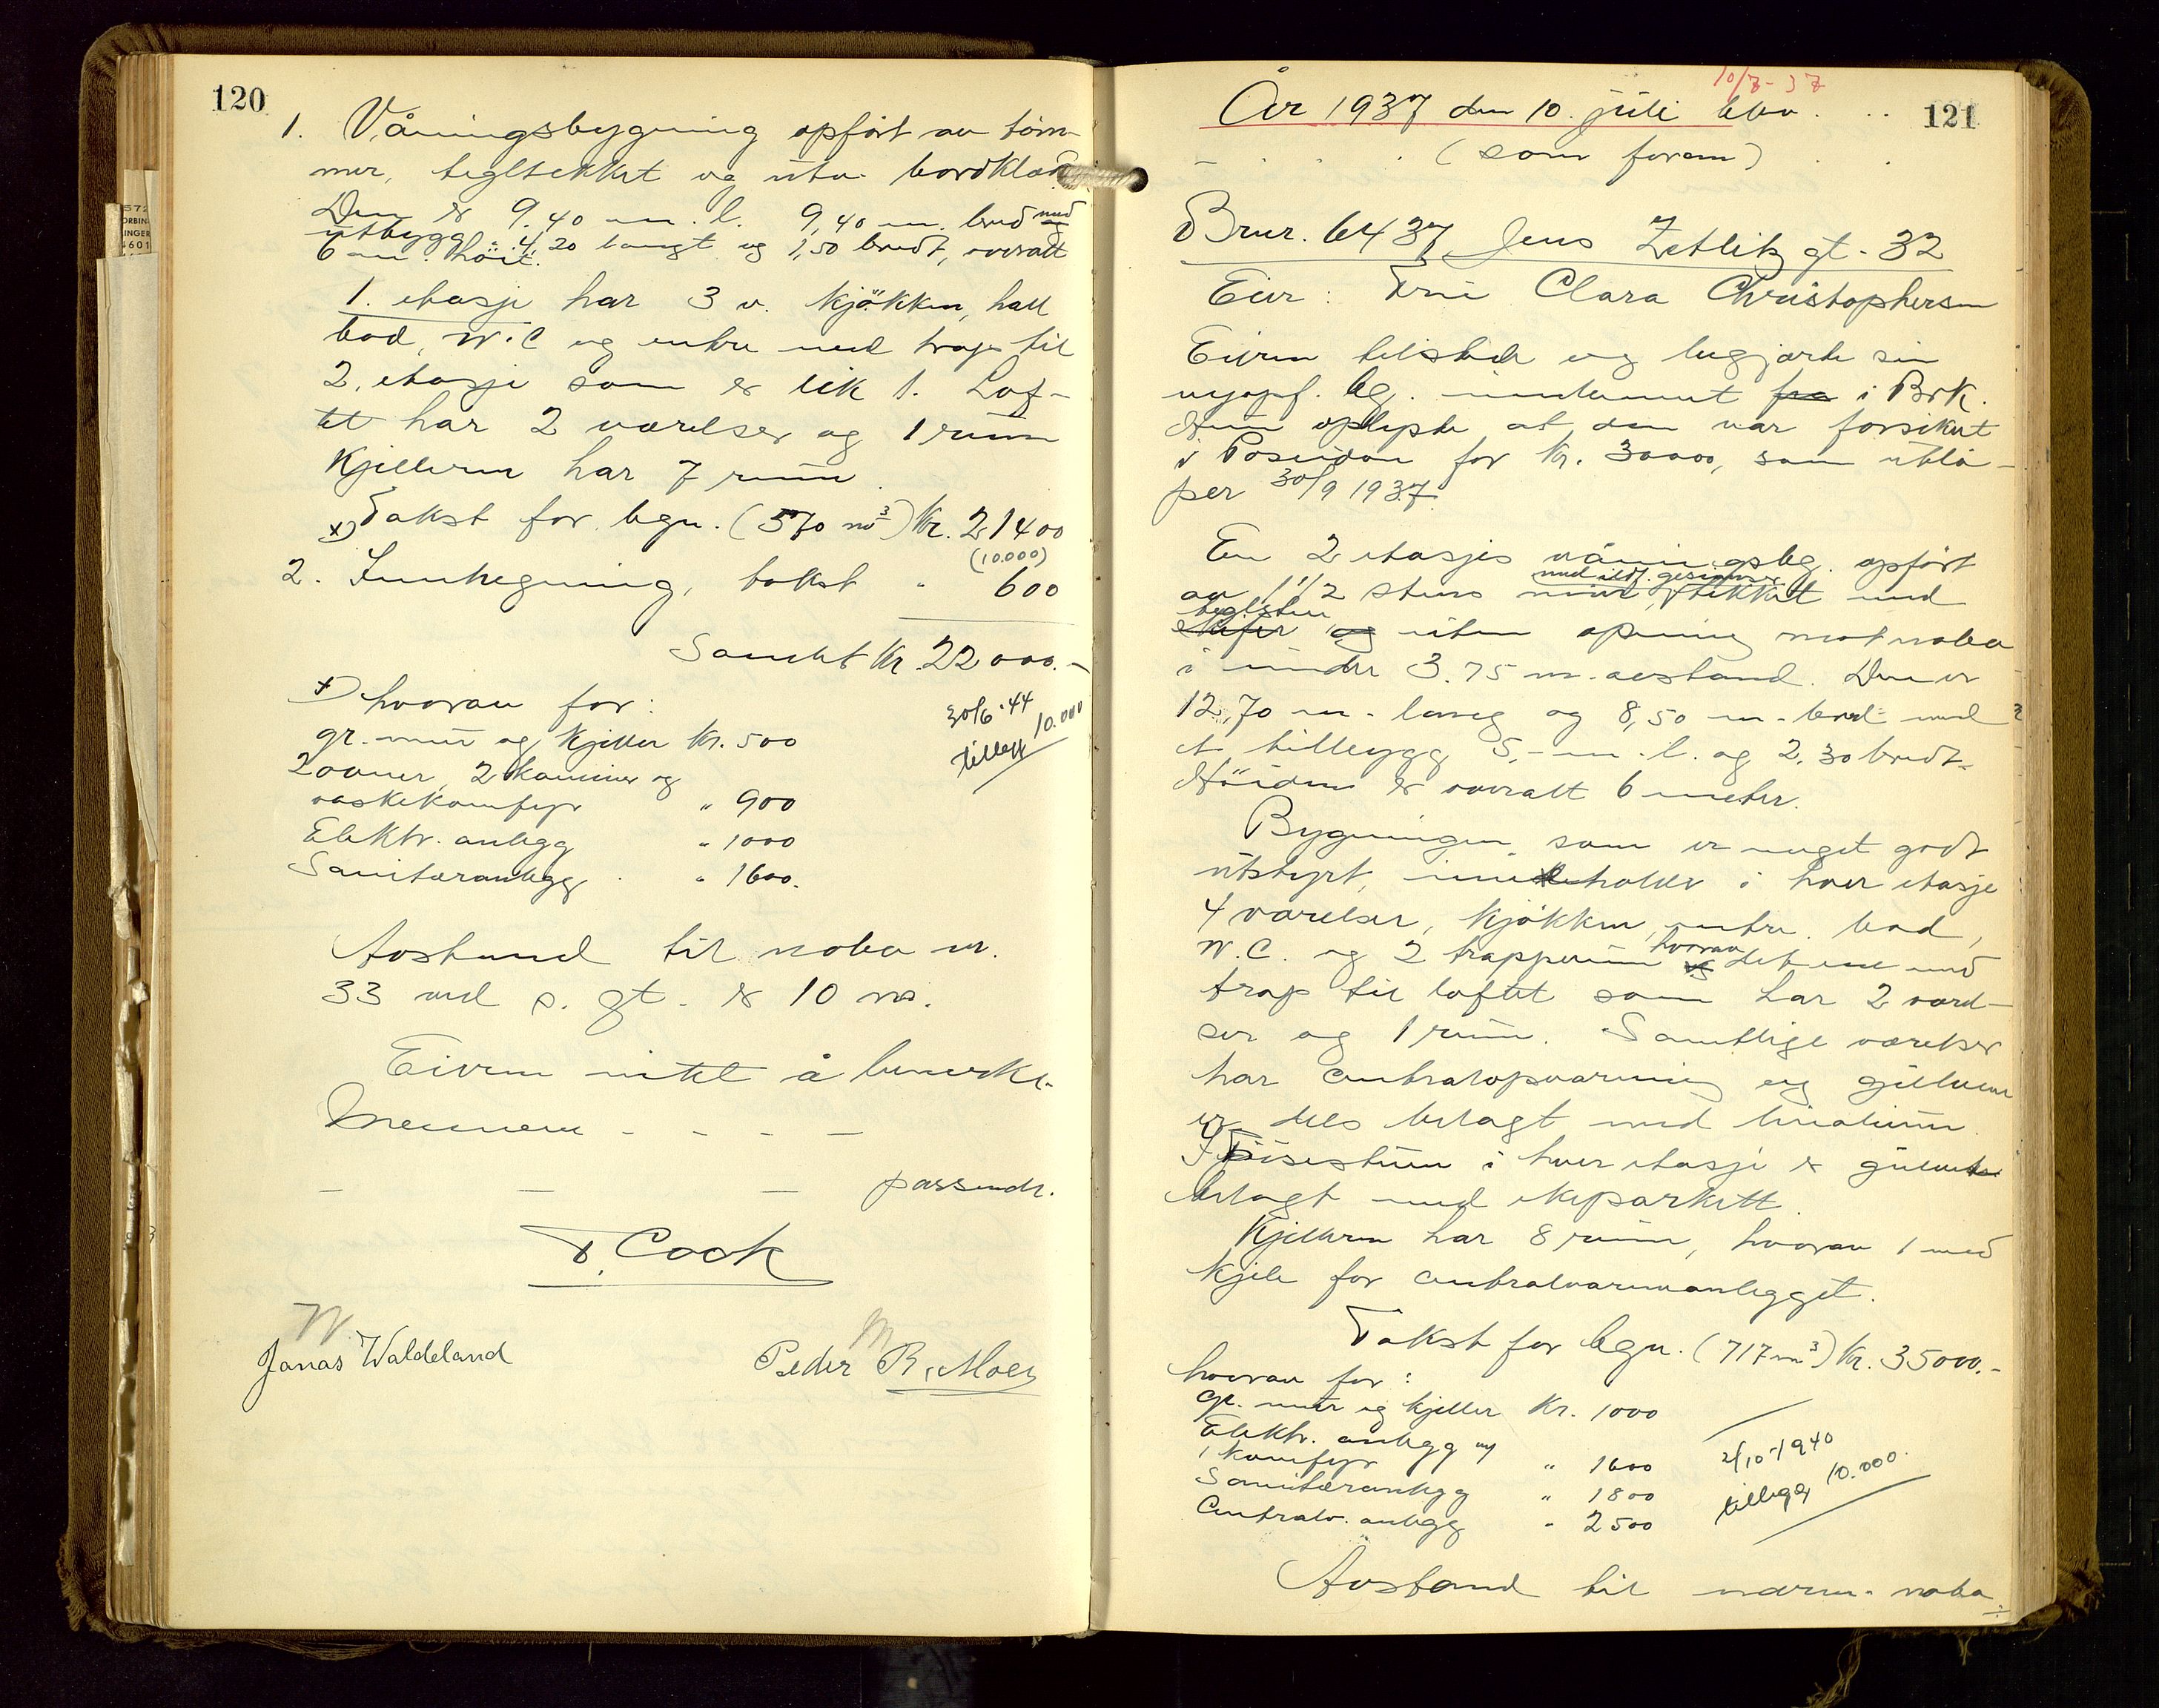 120
1. Våningsbygning opført av töm-
mer, tegltekket og utv. bordklædt
Den er 9,40 m. l. 9,40 m. bred med
utbygg: 4,20 langt og 1,50 bredt, overalt
6 m. høit.
1. etasje har 3 v. kjökken, hall
bad, W.C og entre med trap til
2. etasje som er lik 1. Lof-
tet har 2 værelser og 1 rum
Kjelleren har 7 rum.
x) Takst for bygn. (570 m³) Kr. 21400
(10.000)
2. Innhegning, takst " 600
Samlet Kr. 22000.-
x) hvorav for:
gr. mur og kjeller Kr. 500
2 ovner, 2 kaminer og
vaskekomfyr " 900
Elektr. anlegg " 1000
Sanitæranlegg " 1600.
30/6-44
tillegg 10.000
Avstand til nabo nr.
33 ved s. gt. er 10 m.
Eieren intet å bemerke.
Mennene - - - -
- - - passende.
T. Cock
W.
Jonas Waldeland
M
Peder R. Moen
10/7-37
121
År 1937 den 10. juli blev . . .
- . . . (som foran) . .
Brnr. 6437 Jens Zetlitz gt. 32
Eier: Fru Clara Christophersen
Eieren tilstede og begjærte sin
nyopf. bg. innlemmet fra i Brk.
Hun oplyste at den var forsikret
i Poseidon for kr. 30000, som utlø-
per 30/9 1937.
En 2 etasjes våningsbg. opført
med ildf. gesimser
av 1 1/2 stens mur, tekket med
teglsten
skifer og uten åpning mot nabo
i under 3.75 m. avstand. Den er
12,70 m. lang og 8,50 m. bred med
et tilbygg 5,- m. l. og 2,30 bredt.
Höiden er overalt 6 meter.
Bygningen, som er meget godt
utstyrt, inneholder i hver etasje
4 værelser, kjökken, entre, bad,
hvorav
W.C. og 2 trapperum og det ene med
trap til loftet som har 2 værel-
ser og 1 rum. Samtlige værelser
har centralopvarming og gulvene
er dels belagt med linoleum.
I Peisestuen i hver etasje er gulvene
belagt med ekeparkett.
Kjelleren har 8 rum, hvorav 1 med
kjele for centralvarmeanlegget.
Takst for bgn. (717 m³) Kr. 35000.-
hvorav for:
gr. mur og kjeller Kr. 1000
Elektr. anlegg og
1 komfyr " 1600
Sanitæranlegg " 1800
Centralv. anlegg " 2500
2/10-1940
tillegg 10.000.
Avstand til nærm. nabo